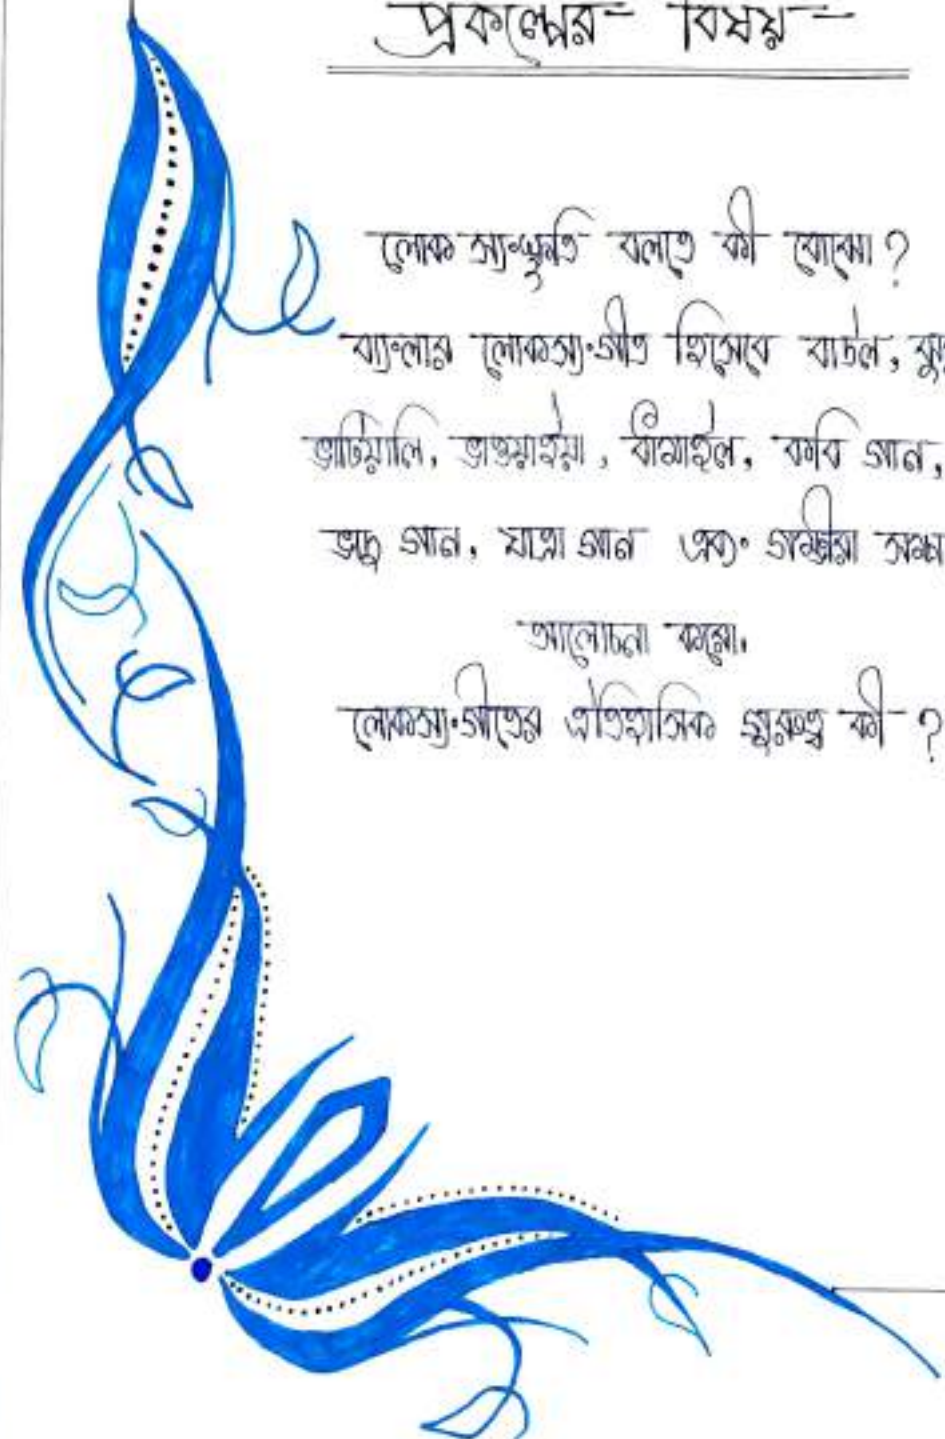 প্রকল্পের বিষয় -
লোক সংস্কৃতি বলতে কী বোঝো ?
বাংলার লোকসংগীত হিসেবে বাউল,
ভাটিয়ালি, ভাওয়াইয়া, কবি গান,
ভাদু গান, যাত্রা গান এবং গম্ভীরা
আলোচনা করো।
লোকসংগীতের ঐতিহাসিক গুরুত্ব কী ?